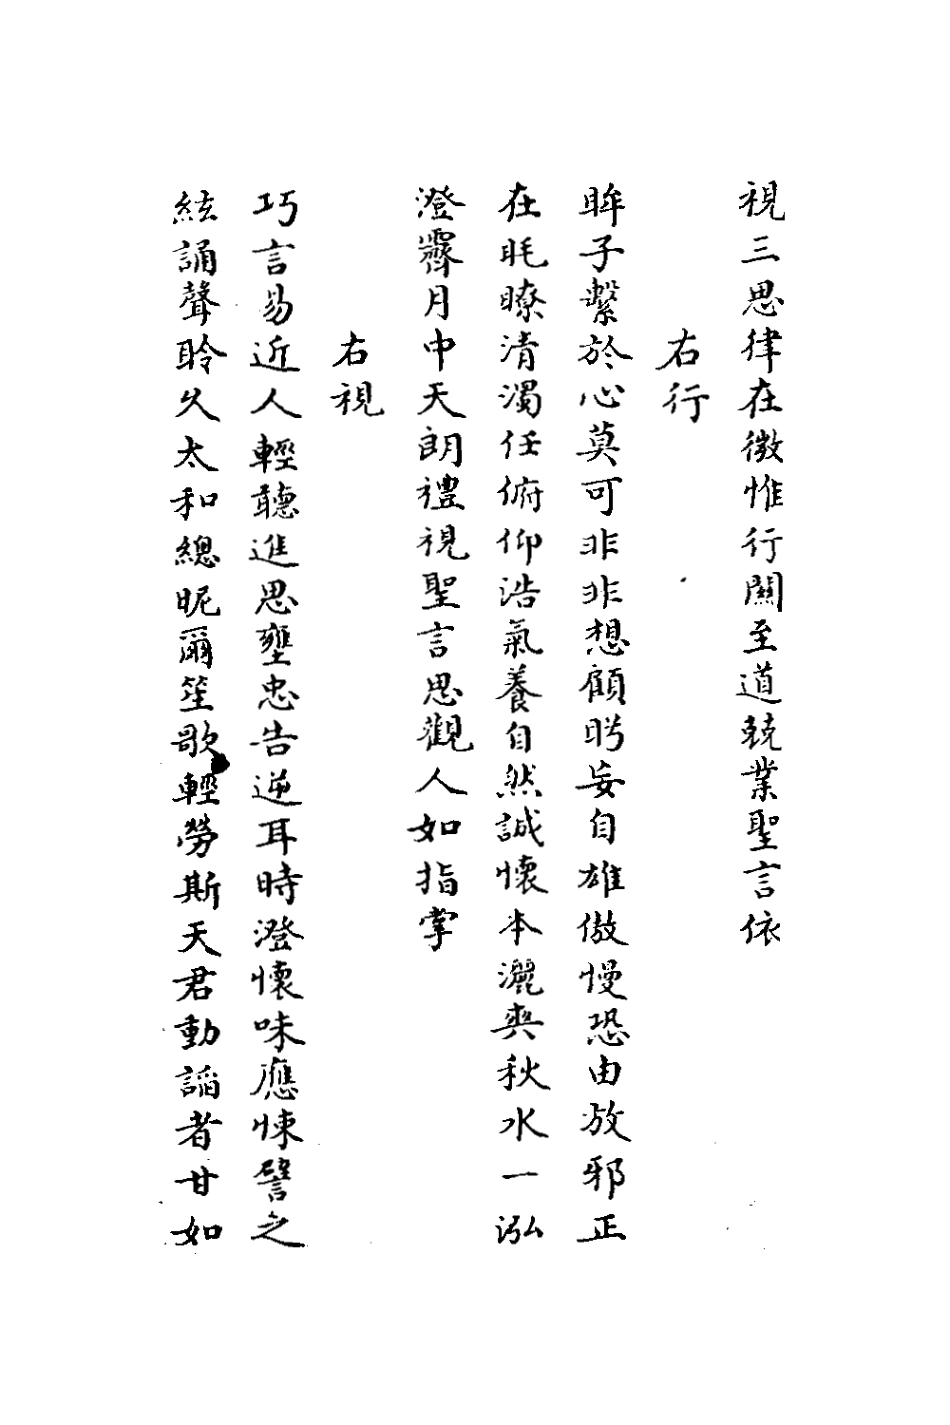 視三思律在微惟行關至道兢業聖言依
右行
眸子繫於心莫可非非想顧眄妄自雄傲慢恐由放邪正
在眊瞭清濁任俯仰浩氣養自然誠懷本灑爽秋水一泓
澄霽月中天朗禮視聖言思觀人如指掌
右視
巧言易近人輕聽進思壅忠告逆耳時澄懷味應悚譬之
絃誦聲聆久太和總昵爾笙歌輕勞斯天君動謟者甘如